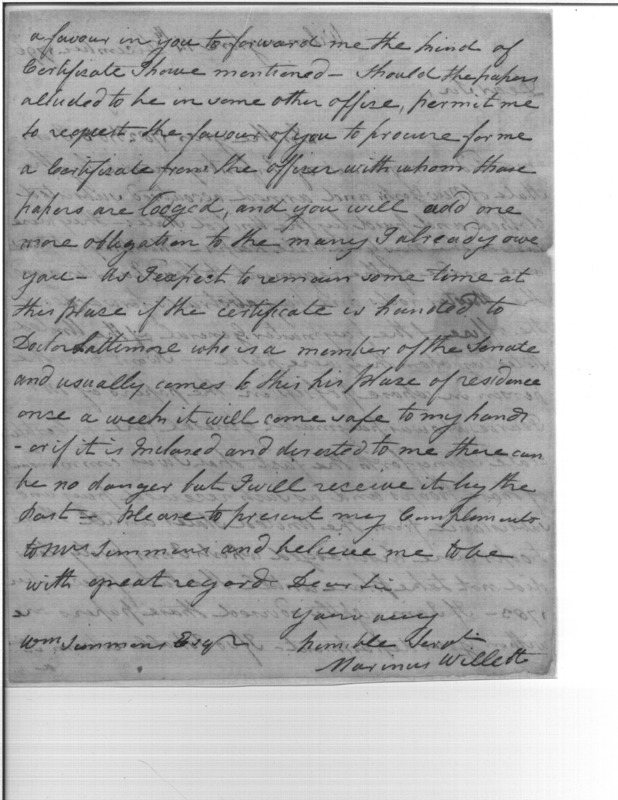 a favour in you to forward me the kind of
Certificate I have mentioned - Should the papers
alluded to be in some other office, permit me
to request the favour of you to procure for me
a Certificate from the officer with whom those
papers are lodged, and you will add one
more obligation to the many I already owe
you - As I expect to remain some time at
this place if the certificate is handed to
Doctor Lattimore who is a member of the Senate
and usually comes to this his place of residence
once a week it will come safe to my hands
- or if it is Inclosed and directed to me there can
be no danger but I will receive it by the
Post - Please to present my Complements
to Mrs Simmons and believe me to be
with great regard Dear Sir
Your very
Wm Simmons Esqr humble Servt
Marinus Willett